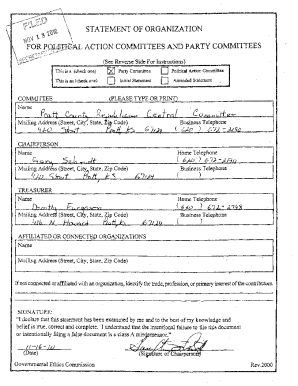 FILED
NOV 18 2010
STATEMENT OF ORGANIZATION
FOR POLITICAL ACTION COMMITTEES AND PARTY COMMITTEES
(See Reverse Side For Instructions)
This is a (check one) Party Committee Political Action Committee
This is an (check one) Initial Statement Amended Statement
COMMITTEE (PLEASE TYPE OR PRINT)
Name
Pratt County Republican Central Committee
Mailing Address (Street, City, State, Zip Code) Business Telephone
Pratt, KS 67124 (620) 672-
CHAIRPERSON
Name Home Telephone
Gary Schmidt (620) 672-
Mailing Address (Street, City, State, Zip Code) Business Telephone
Pratt, KS 67124 ( )
TREASURER
Name Home Telephone
Dorothy (620) 672-2798
Mailing Address (Street, City, State, Zip Code) Business Telephone
416 N. Howard Pratt, Ks 67124 ( )
AFFILIATED OR CONNECTED ORGANIZATIONS
Name
Mailing Address (Street, City, State, Zip Code)
If not connected or affiliated with an organization, identify the trade, profession, or primary interest of the contributors.
SIGNATURE:
"I declare that this statement has been examined by me and to the best of my knowledge and
belief is true, correct and complete. I understand that the intentional failure to file this document
or intentionally filing a false document is a class A misdemeanor."
11-16-10
(Date) (Signature of Chairperson)
Governmental Ethics Commission Rev.2000